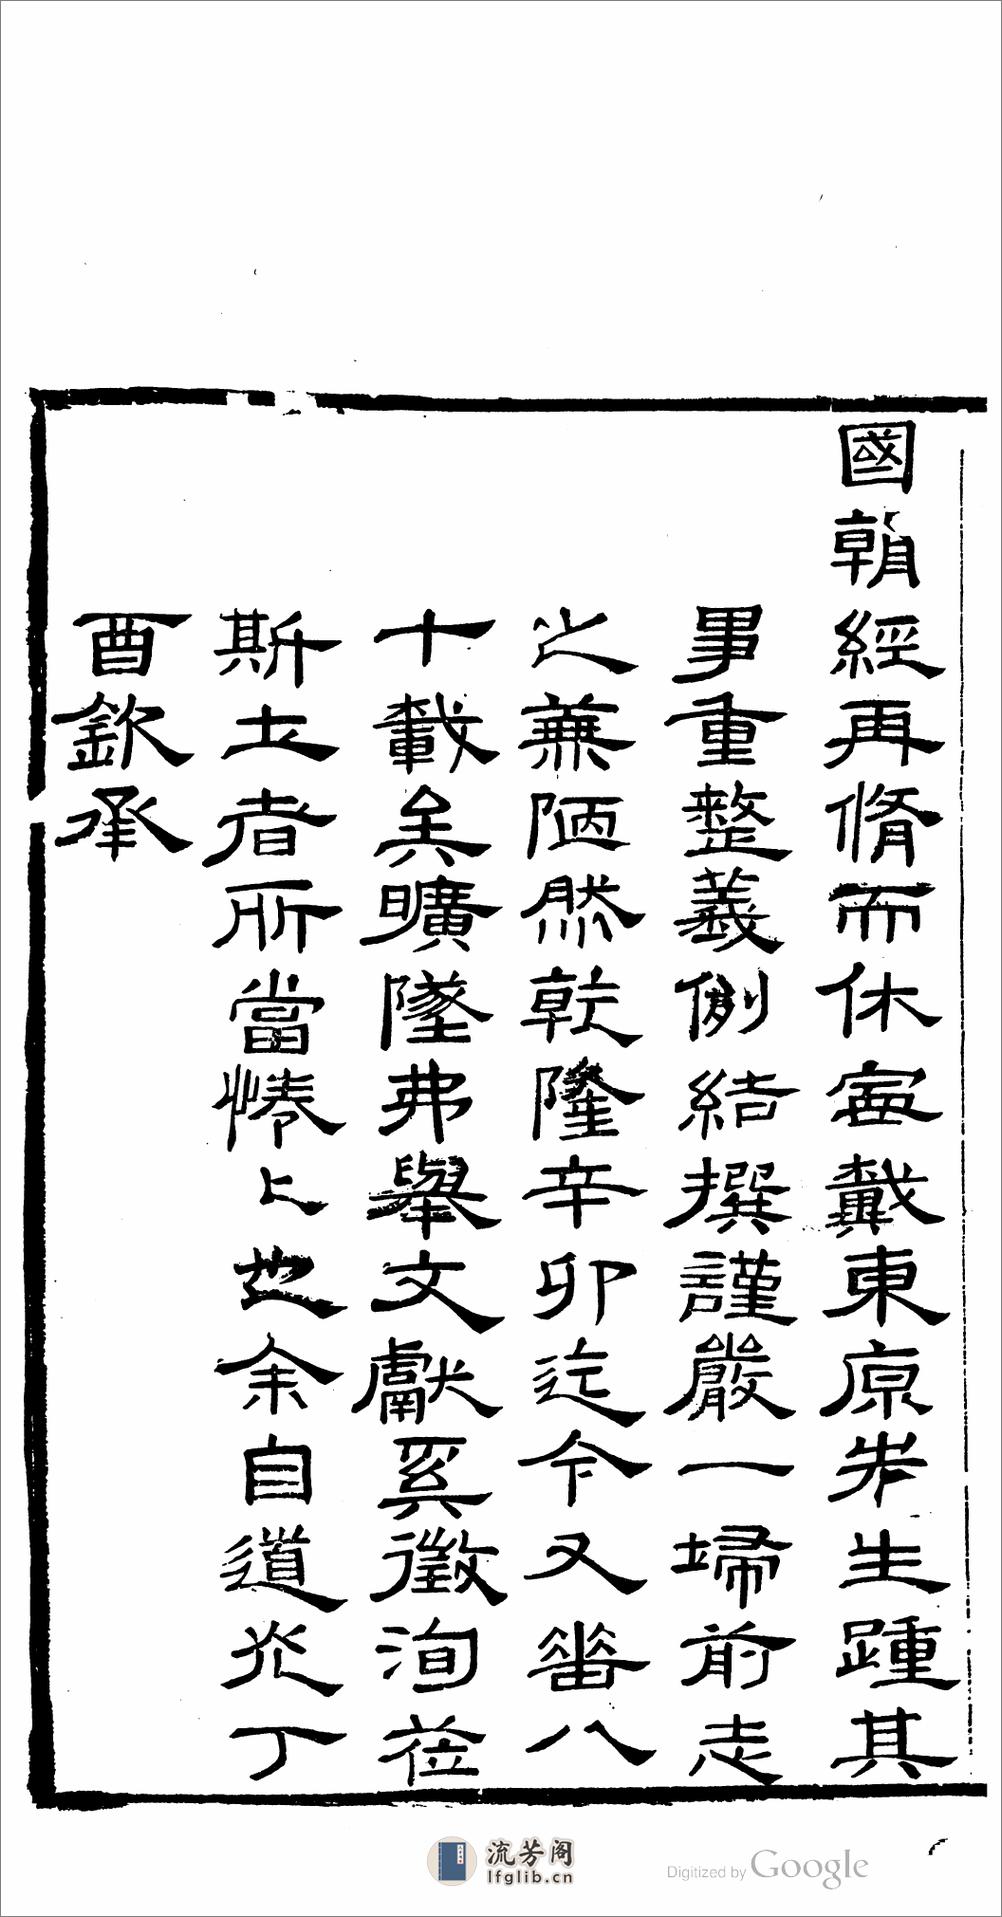 國朝經再脩而休寧戴東原先生踵其
事重整義例結撰謹嚴一埽前志
之蕪陋然乾隆辛卯迄今又畨八
十載矣曠墜弗舉文獻奚徵洵莅
斯土者所當惓惓也余自道光丁
酉欽承
流芳阁
lfglib.cn
Digitized by Google